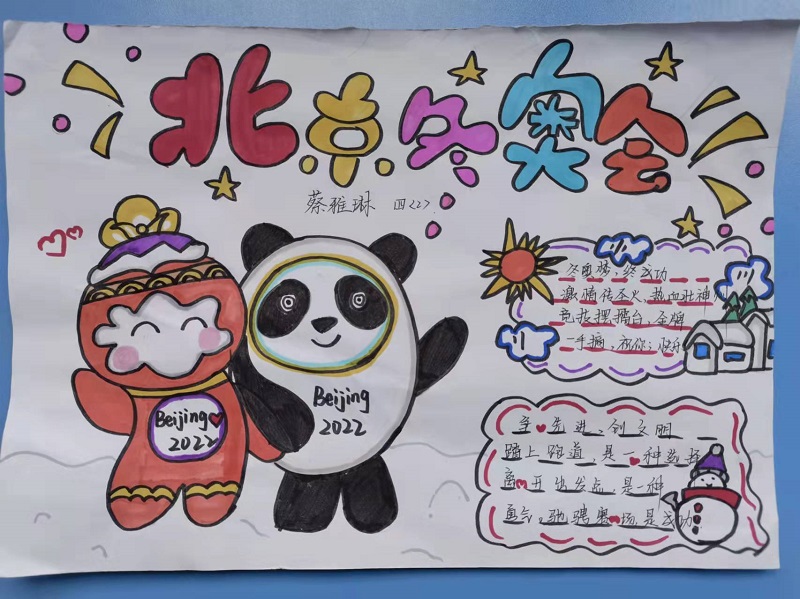 北京冬奥会
蔡雅琳 四<2>
冬奥梦,终成功
激情传圣火,热血壮神州
竞技摆擂台,金牌
一手摘,祝你:快乐
Beijing
2022
Beijing
2022
争先进、创文明
踏上跑道,是一种选择
离开出发点,是一种
勇气,驰骋赛场是成功